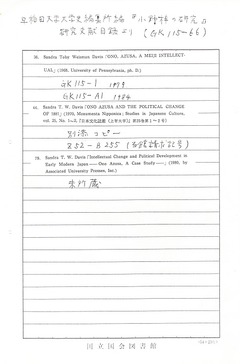 早稲田大学大学史編集所編『小野梓の研究』
研究文献目録より (GK115-66)
36. Sandra Toby Weisman Davis「ONO, AZUSA, A MEIJI INTELLECT-
UAL」(1968. University of Pennsylvania, ph. D)
GK115-1 1979
GK115-A1 1984
Sandra T. W. Davis「ONO AZUSA AND THE POLITICAL CHANGE
OF 1881」(1970. Monumenta Nipponica; Studies in Japanese Culture,
vol. 25, No. 1~2,『日本文化誌叢(上智大学)』第25巻第1~2号)
別添コピー
Z52-B255 (
Sandra T. W. Davis「Intellectual Change and Political Development in
Early Modern Japan—Ono Azusa, A Case Study—」(1980. by
Associated University Presses, Inc.)
未所蔵
国立国会図書館